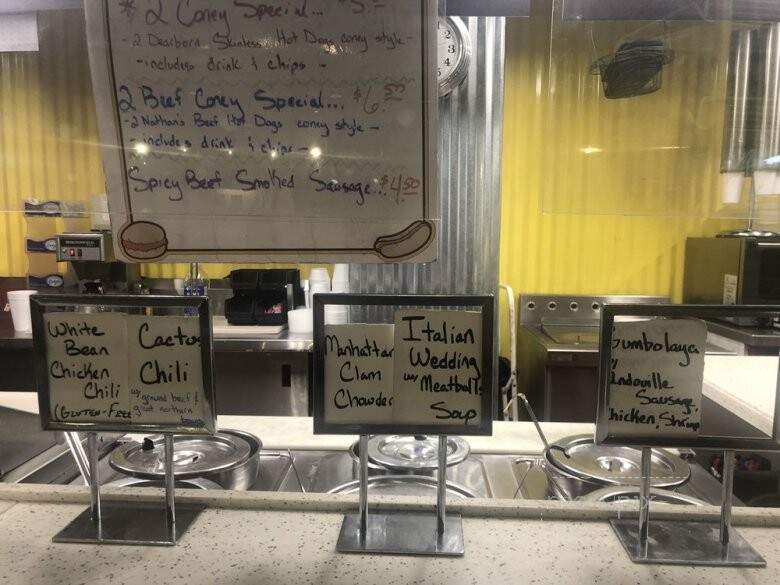 * 2 Coney Special... $5
- 2 Dearborn Skinless Hot Dogs coney style -
- includes drink & chips -
2 Beef Coney Special... $6.50
- 2 Nathan's Beef Hot Dogs coney style -
- includes drink & chips -
Spicy Beef Smoked Sausage... $4.50
White
Bean
Chicken
Chili
(Gluten-Free
Cactus
Chili
w/ ground beef &
great northern
Manhattan
Clam
Chowder
Italian
Wedding
w/ Meatball
Soup
Gumbolaya
w/
Andouille
Sausage,
Chicken, Shrimp
2
3
4